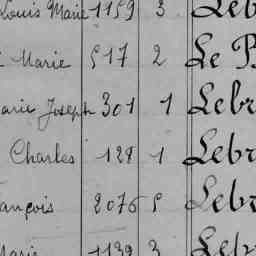 Louis Marie 1159 3 Leb
Marie 517 2 Le
Joseph 301 1 Lebr
Charles 128 1 Lebr
ançois 2076 5 Lebr
Marie 1139 3 Lebr